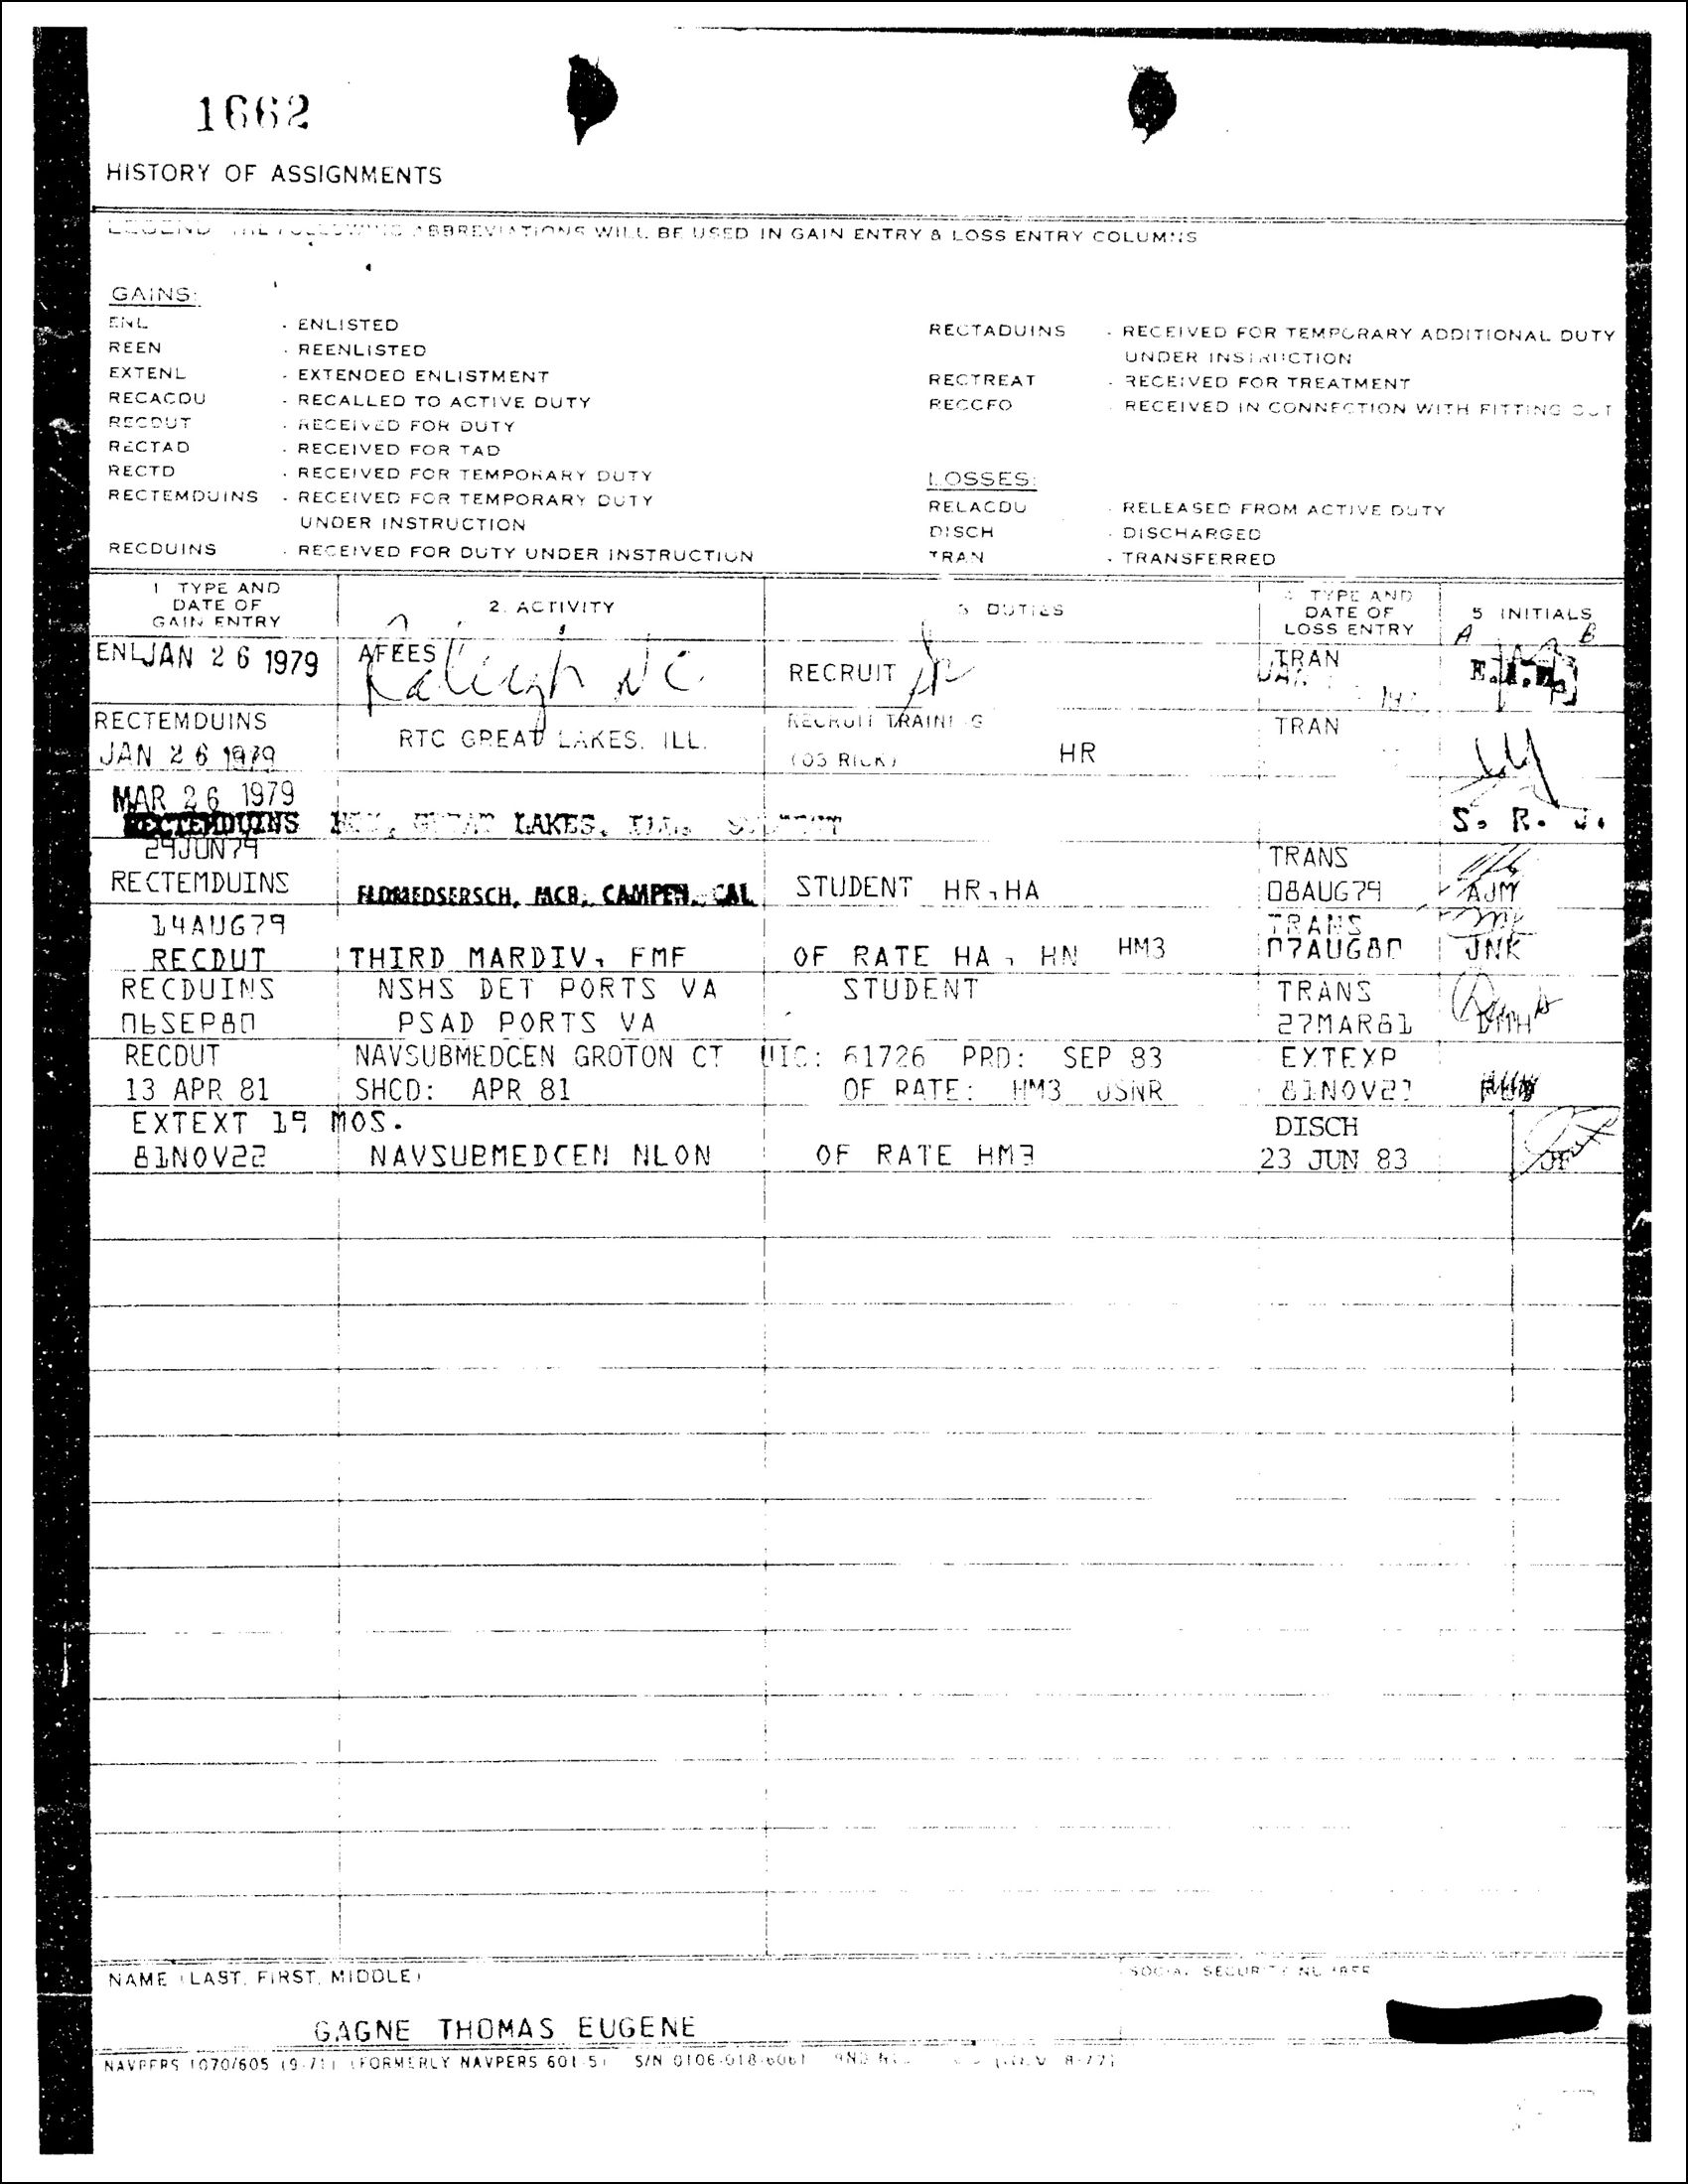 1662
HISTORY OF ASSIGNMENTS
LEGEND THE FOLLOWING ABBREVIATIONS WILL BE USED IN GAIN ENTRY & LOSS ENTRY COLUMNS
GAINS:
ENL - ENLISTED
REEN - REENLISTED
EXTENL - EXTENDED ENLISTMENT
RECACDU - RECALLED TO ACTIVE DUTY
RECDUT - RECEIVED FOR DUTY
RECTAD - RECEIVED FOR TAD
RECTD - RECEIVED FOR TEMPORARY DUTY
RECTEMDUINS - RECEIVED FOR TEMPORARY DUTY
UNDER INSTRUCTION
RECDUINS - RECEIVED FOR DUTY UNDER INSTRUCTION
RECTADUINS - RECEIVED FOR TEMPORARY ADDITIONAL DUTY
UNDER INSTRUCTION
RECTREAT - RECEIVED FOR TREATMENT
RECCFO RECEIVED IN CONNECTION WITH FITTING OUT
LOSSES:
RELACDU - RELEASED FROM ACTIVE DUTY
DISCH - DISCHARGED
TRAN - TRANSFERRED
1 TYPE AND DATE OF GAIN ENTRY 2. ACTIVITY 3 DUTIES 4 TYPE AND DATE OF LOSS ENTRY 5 INITIALS
A B
ENL JAN 26 1979 AFEES Raleigh NC RECRUIT TRAN
JAN
RECTEMDUINS RECRUIT TRAINING TRAN
JAN 26 1979 RTC GREAT LAKES, ILL. HR
MAR 26 1979
RECTEMDUINS GREAT LAKES, ILL. STUDENT S. R. J.
29JUN79 TRANS
RECTEMDUINS FLDMEDSERSCH, MCB, CAMPEN, CAL STUDENT HR, HA 08AUG79 AJM
14AUG79 TRANS
RECDUT THIRD MARDIV, FMF OF RATE HA, HN HM3 07AUG80 JNK
RECDUINS NSHS DET PORTS VA STUDENT TRANS
06SEP80 PSAD PORTS VA 27MAR81
RECDUT NAVSUBMEDCEN GROTON CT UIC: 61726 PRD: SEP 83 EXTEXP
13 APR 81 SHCD: APR 81 OF RATE: HM3 USNR 81NOV21
EXTEXT 19 MOS. DISCH
81NOV22 NAVSUBMEDCEN NLON OF RATE HM3 23 JUN 83 JF
NAME (LAST, FIRST, MIDDLE) SOCIAL SECURITY NUMBER
GAGNE THOMAS EUGENE
NAVPERS 1070/605 (9-71) (FORMERLY NAVPERS 601-5) S/N 0106-018-6061